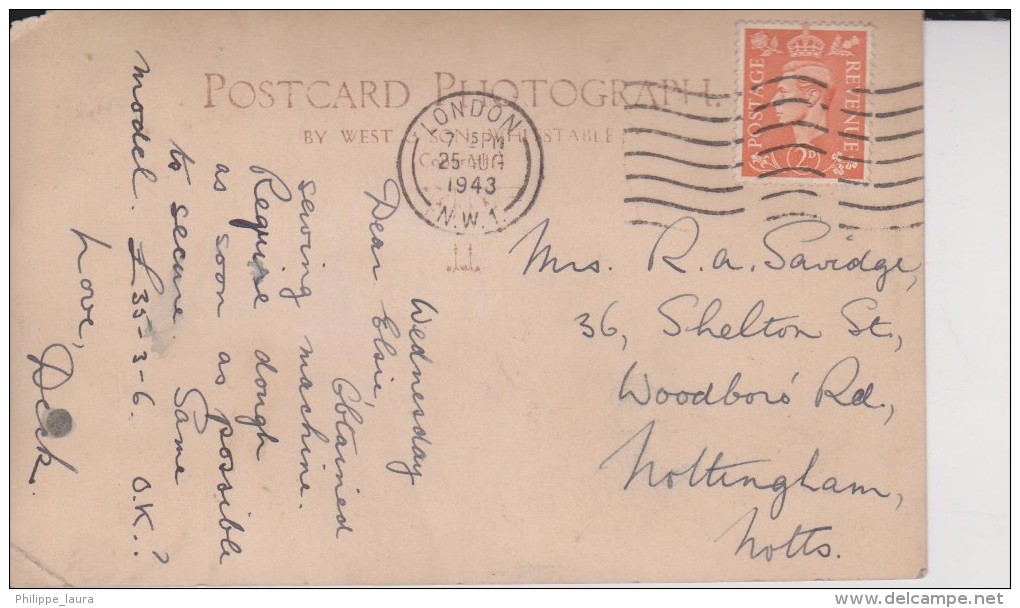 POSTCARD PHOTOGRAPH.
BY WEST & SON, WHITSTABLE
LONDON
7 15 PM
25 AUG
1943
N.W.1.
POSTAGE
REVENUE
2D
Wednesday
Dear Elsie,
Obtained
sewing machine.
Require dough
as soon as possible
to secure Same
model. £35-3-6. O.K.?
Love,
Dick.
Mrs. R.A. Savidge,
36, Shelton St.,
Woodboro' Rd.,
Nottingham,
Notts.
Philippe_laura